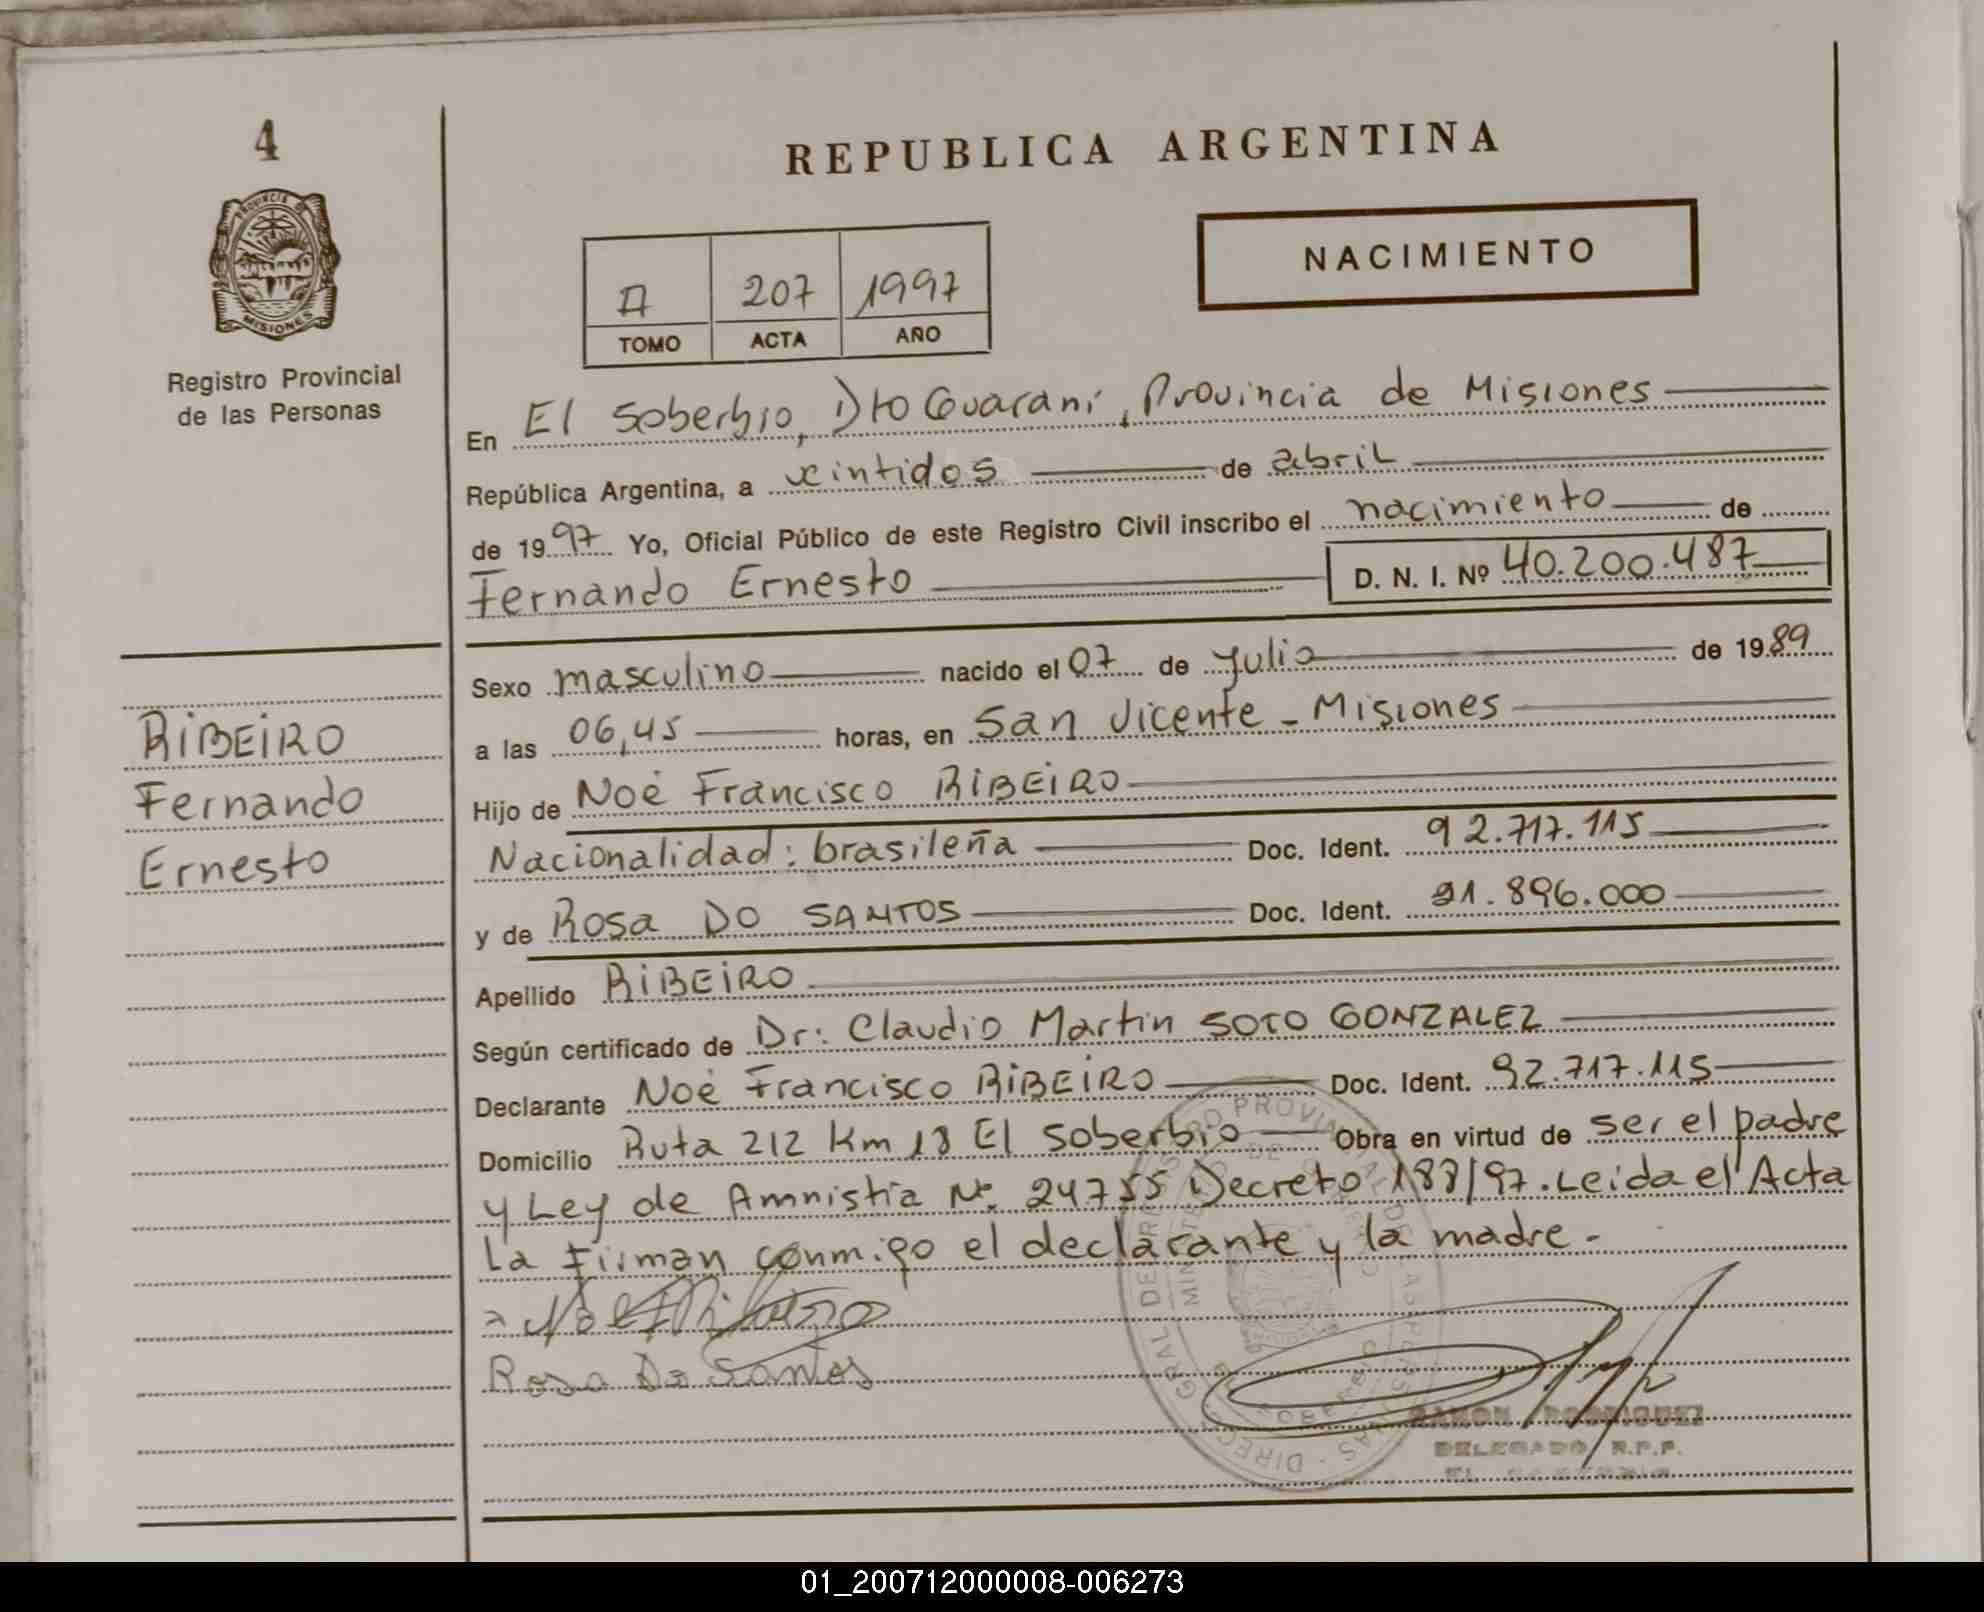 4
PROVINCIA DE
MISIONES
Registro Provincial
de las Personas
REPUBLICA ARGENTINA
NACIMIENTO
207 1997
TOMO ACTA AÑO
En El Soberbio, Dto Guaraní, Provincia de Misiones
República Argentina, a vintidos de abril
de 1997 Yo, Oficial Público de este Registro Civil inscribo el nacimiento de
Fernando Ernesto D. N. I. Nº 40.200.487
Sexo masculino nacido el 07 de Julio de 1989
a las 06,45 horas, en San Vicente - Misiones
Hijo de Noé Francisco RIBEIRO
Nacionalidad: brasileña Doc. Ident. 92.717.115
y de Rosa DO SANTOS Doc. Ident. 91.896.000
Apellido RIBEIRO
Según certificado de Dr: Claudio Martin SOTO GONZALEZ
Declarante Noé Francisco RIBEIRO Doc. Ident. 92.717.115
Domicilio Ruta 212 Km 18 El Soberbio Obra en virtud de ser el padre
y Ley de Amnistía Nº 24755 Decreto 188/97. Leida el Acta
La firman conmigo el declarante y la madre.-
Rosa Do Santos
RAMON RODRIGUEZ
DELEGADO R.P.P.
EL SOBERBIO
RIBEIRO
Fernando
Ernesto
01_200712000008-006273